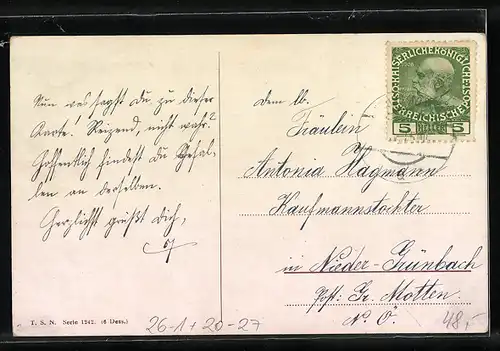 Nun was sagst Du zu dieser
Karte! Reizend, nicht wahr?
Hoffentlich findest Du Gefal-
len an derselben.
Herzlichst grüßt Dich,
dem lb.
Fräulein
Antonia Hagmann
Kaufmannstochter
in Nieder-Grünbach
Post: Gr. Motten
N. Ö.
KAISERLICHE KÖNIGLICHE
ÖSTERREICHISCHE POST
5 HELLER 5
T. S. N. Serie 1242. (6 Dess.)
26-1+20-27
48,-